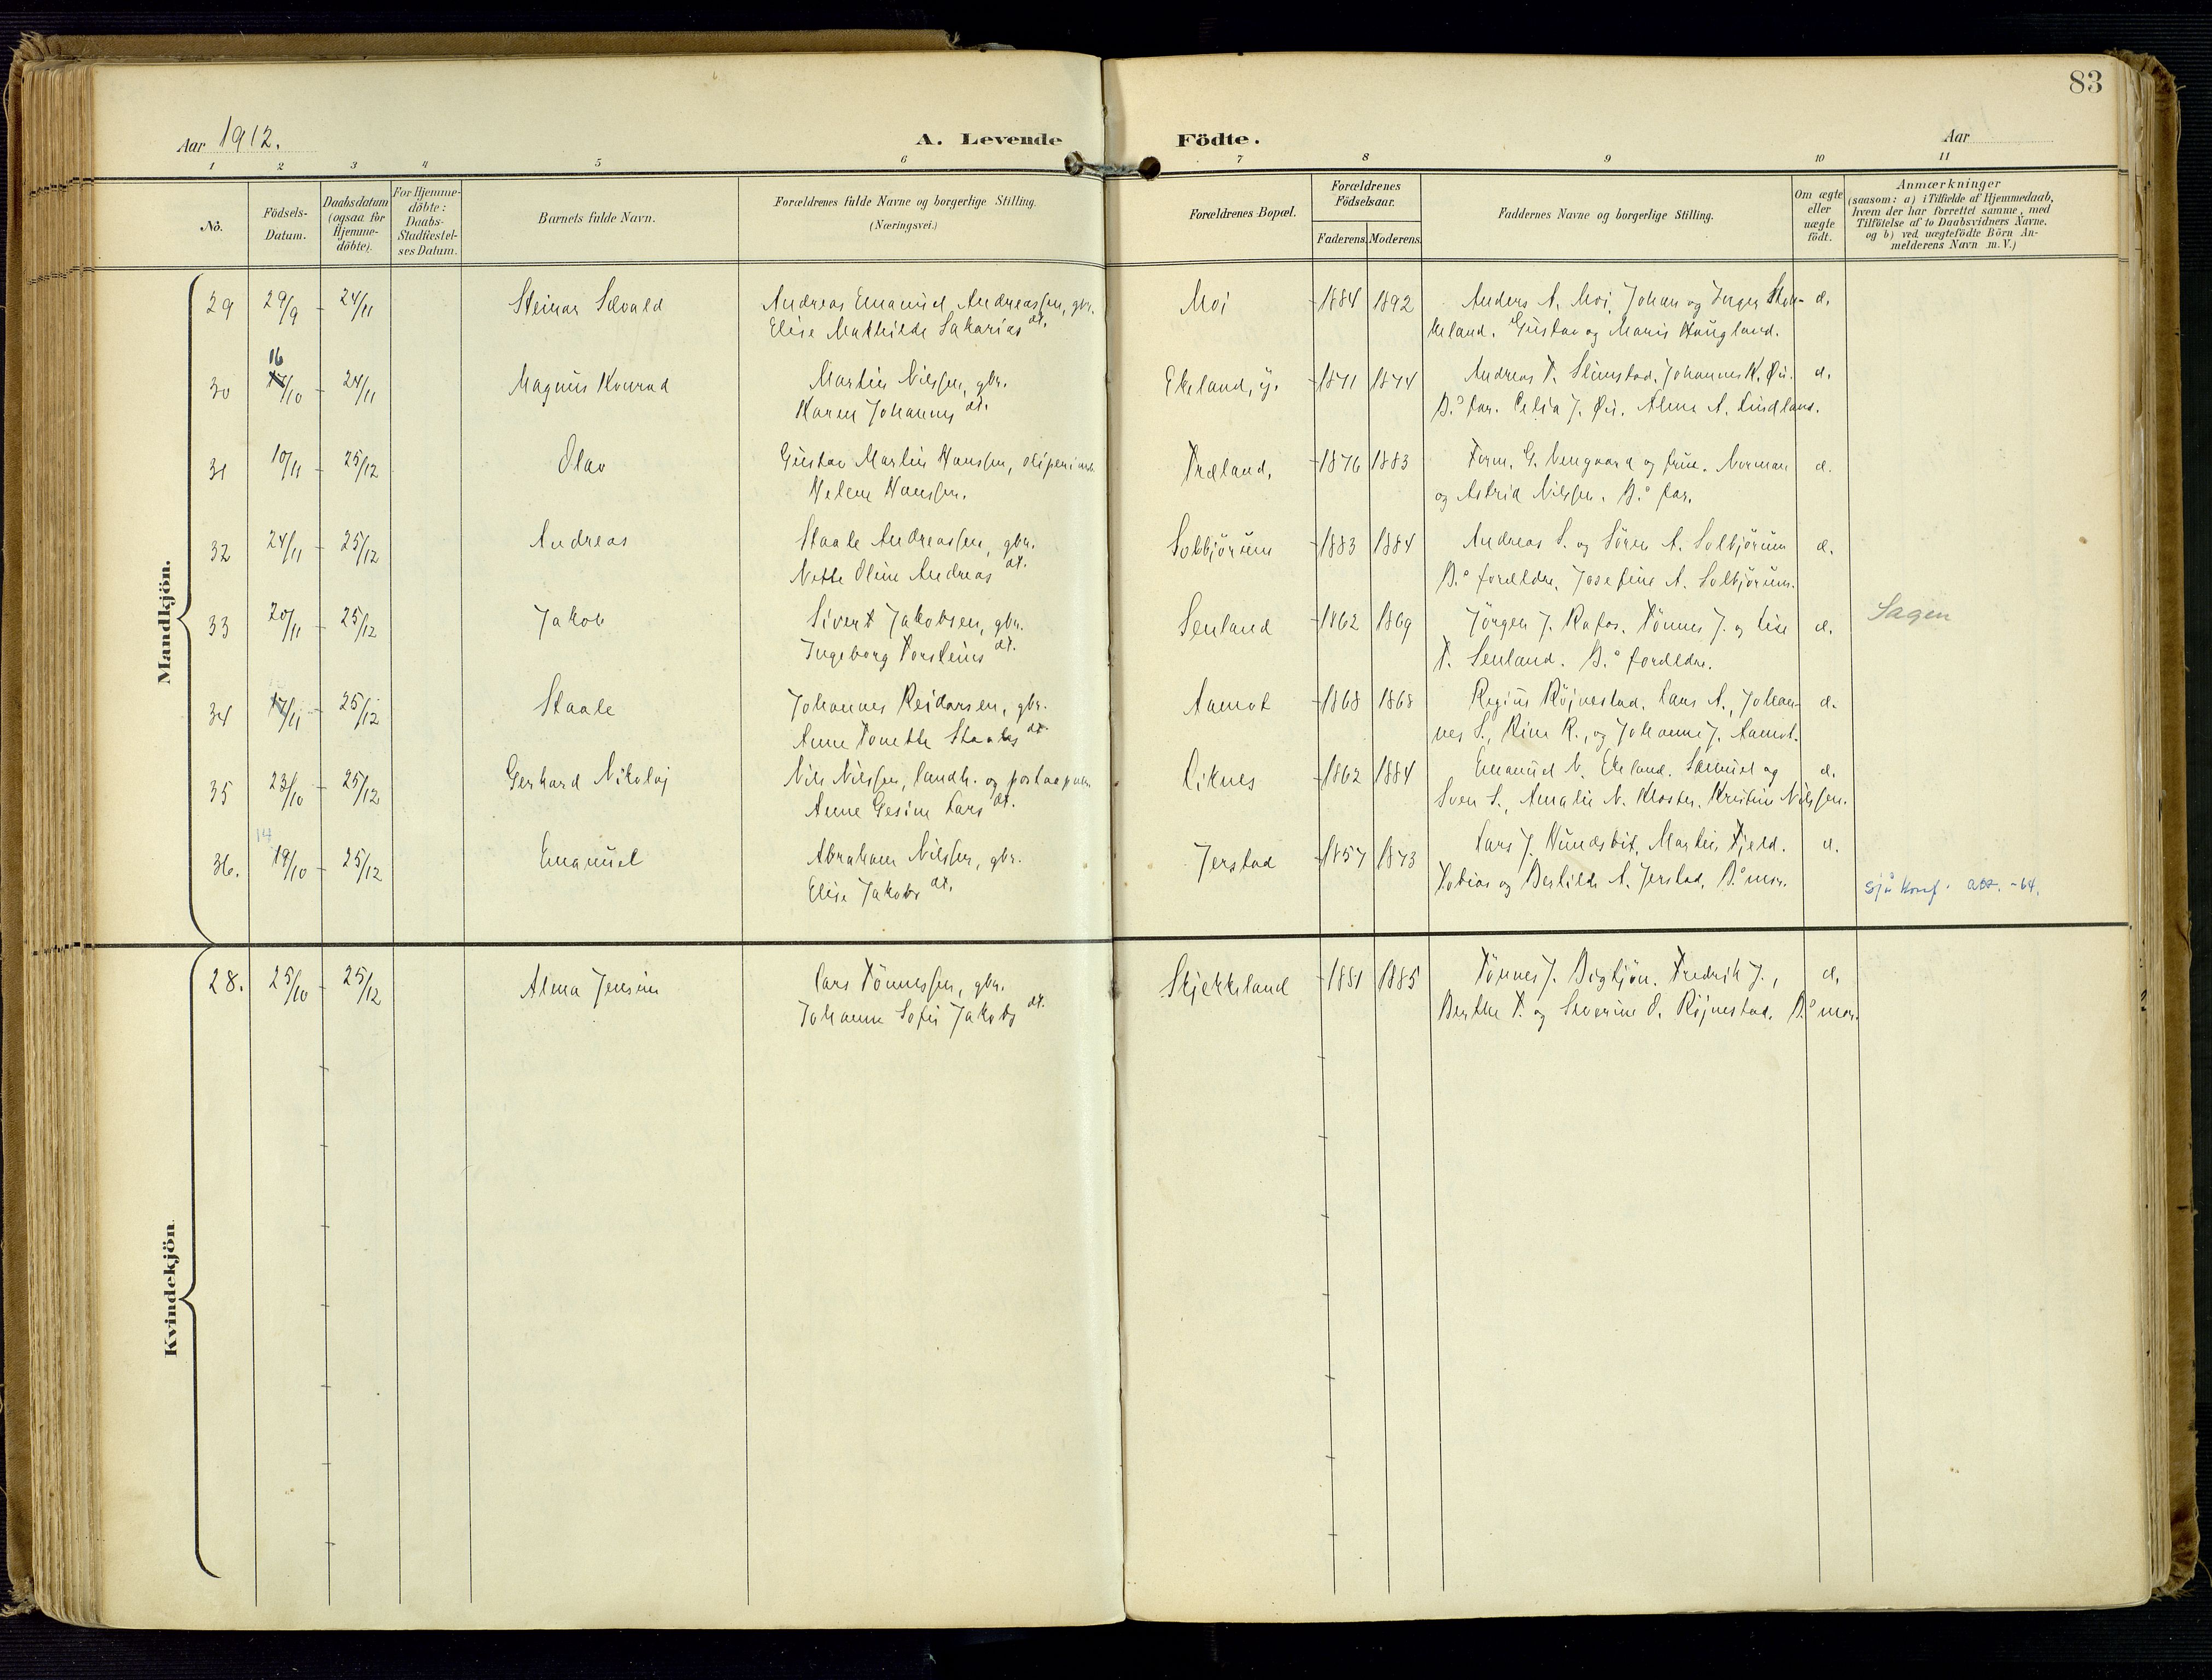 83
Aar 1912.
A. Levende Födte.
Aar
1 2 3 4 5 6 7 8 9 10 11
Nö.
Födsels-Datum.
Daabsdatum (ogsaa for Hjemmedöbte).
For Hjemmedöbte: Daabs-Stadfæstelses Datum.
Barnets fulde Navn.
Forældrenes fulde Navne og borgerlige Stilling.
(Næringsvei.)
Forældrenes Bopæl.
Forældrenes Födselsaar.
Faderens. Moderens.
Faddernes Navne og borgerlige Stilling.
Om ægte eller uægte födt.
Anmærkninger
(saasom: a) i Tilfælde af Hjemmedaab,
hvem der har forrettet samme, med
Tilföielse af to Daabsvidners Navne.
og b) ved uægtefödte Börn An-
melderens Navn m. V.)
Mandkjön.
29 29/9 24/11 Steinar Sævald Andreas Emanuel Andreassen, gbr. Moi 1884 1892 Anders A. Moi, Johan og Inger
Elise Mathilde Sakarias dt. keland. Gustav og Marie Haugland. æ.
16
30 17/10 24/11 Magnus Konrad Martin Nilssen, gbr. Ekeland, y. 1871 1874 Andreas T. Slimstad, Johannes K. Øi. æ.
Karen Johannes dt. B.s far. Celia J. Øi. Alma A. Lindland.
31 10/11 25/12 Olav Gustav Martin Hanssen, Træland, 1876 1883 Form. G. Nengaard og frue. Norman æ.
Helene Hanssen. og Astrid Nilssen. B.s far.
32 24/11 25/12 Andreas Staale Andreassen, gbr. Solbjörum 1883 1884 Andreas S. og Sören A. Solbjörum æ.
Nette Oline Andreas dt. B.s forældre, Josefine A. Solbjörum.
33 20/11 25/12 Jakob Sivert Jakobsen, gbr. Senland 1862 1869 Jörgen J. Rafos. Tönnes J. og Lise æ. Sagen
Ingeborg Torsteins dt. T. Senland. B.s forældre.
34 17/11 25/12 Staale Johannes Reidarsen, gbr. Aamot 1868 1868 Regius Röjnestad. Lars A., Johan- æ.
Anne Tonette Staales dt. nes S., Rina R., og Johanne J. Aamot.
35 23/10 25/12 Gerhard Nikolaj Nils Nilssen, landh. og Liknes 1862 1884 Emanuel N. Ekeland. Samuel og æ.
Anne Gesine Lars dt. Sven S., Amalie N. Kloster. Kristine Nilssen.
14
36. 19/10 25/12 Emanuel Abraham Nilssen, gbr. Jerstad 1857 1873 Lars J. Hundsbit, Martin Fjeld. æ.
Elise Jakobs dt. Tobias og Bertilde A. Jerstad. B.s mor.
Sjå konf. att. -64.
Kvindekjön.
28. 25/10 25/12 Alma Jensine Lars Tönnessen, gbr. Skjekkeland 1881 1885 Tönnes J. Bigtjön. Fredrik J., æ.
Johanne Sofie Jakobs dt. Berthe T. og Severine O. Röjnestad. B.s mor.